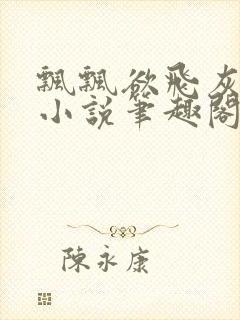 飄飄欲飛灰
小說筆趣閣
陳永康